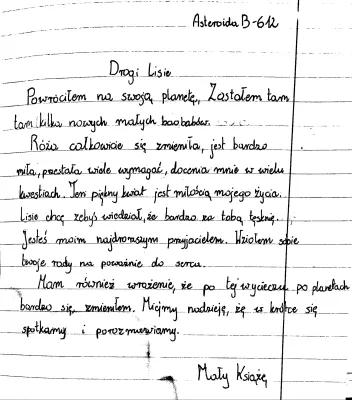 Asteroida B-612
Drogi Lisie
Powróciłem na swoją planetę, Zastałem tam
tam kilka nowych małych baobabów.
Róża całkowicie się zmieniła, jest bardzo
miła, przestała wiele wymagać, docenia mnie w wielu
kwestiach. Ten piękny kwiat jest miłością mojego życia.
Lisie chcę żebyś wiedział, że bardzo za tobą tęsknię...
Jesteś moim najdroższym przyjacielem. Wziołem sobie
twoje rady na poważnie do serca.
Mam również wrażenie, że po tej wycieczce po planetach
bardzo się zmieniłem. Miejmy nadzieję, że w krótce się
spotkamy i porozmawiamy.
Mały Książę